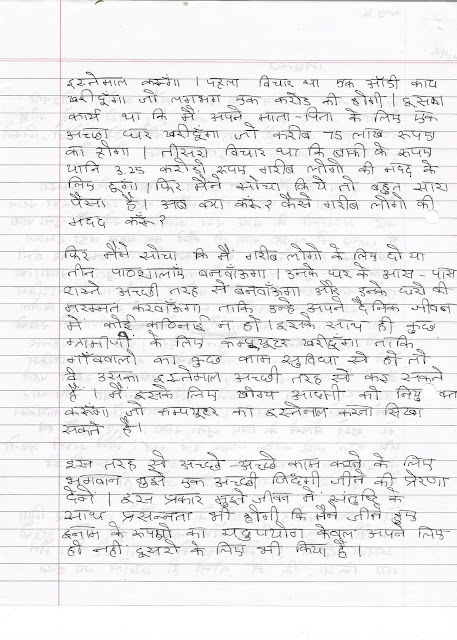 इस्तेमाल करूँगा । पहला विचार था एक ऑडी काय
खरीदूँगा जो लगभग एक करोड की होगी । दूसरा
कार्य था कि मैं अपने माता-पिता के लिए एक
अच्छा घर खरीदूँगा जो करीब 75 लाख रूपए
का होगा । तीसरा विचार था कि बाकी के रूपए
यानि 3.25 करोडो रूपए गरीब लोगो की मदद के
लिए दूगा । फिर मैने सोचा कि ये तो बहुत सारा
पैसा है । अब क्या करूँ ? कैसे गरीब लोगो की
मदद करूँ ?
फिर मैंने सोचा कि मैं गरीब लोगो के लिए दो या
तीन पाठशालाएँ बनवाऊँगा । उनके घर के आस - पास
रास्ते अच्छी तरह से बनवाऊँगा और उनके घरो की
मरम्मत करवाऊँगा ताकि उन्हे अपने दैनिक जीवन
मे कोई कठिनाई न हो । इसके साथ ही कुछ
ग्रामीणो के लिए कम्प्यूटर खरीदूंगा ताकि
गाँववालो का कुछ काम सुविधा से हो तो
वे उसका इस्तेमाल अच्छी तरह से कर सकते
है । मैं इसके लिए योग्य आदमी को नियुक्त
करूँगा जो कम्प्युटर का इस्तेमाल करना सिखा
सकते है ।
इस तरह से अच्छे - अच्छे काम करने के लिए
भगवान मुझे एक अच्छी जिंदगी जीने की प्रेरणा
देंगे । इस प्रकार मुझे जीवन मे संतुष्टि के
साथ प्रसन्नता भी होगी कि मैने जीते हुए
इनाम के रूपयो का सदुपयोग केवल अपने लिए
ही नही दूसरो के लिए भी किया है ।